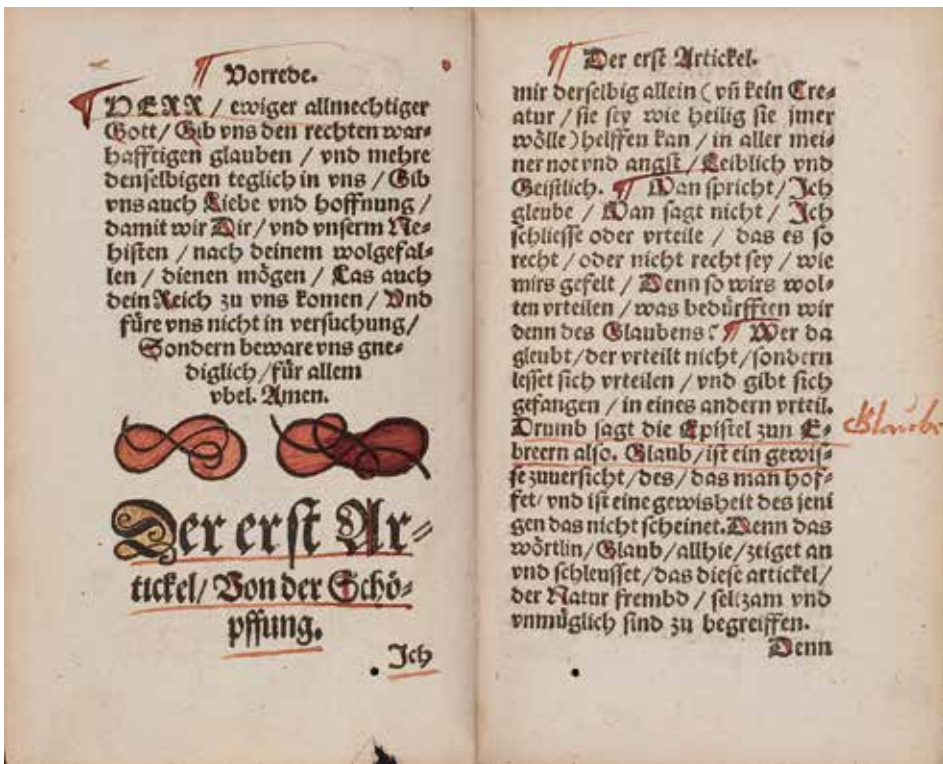 Vorrede.
HERR / ewiger allmechtiger
Gott / Gib vns den rechten war⸗
hafftigen glauben / vnd mehre
denselbigen teglich in vns / Gib
vns auch Liebe vnd hoffnung /
damit wir Dir / vnd vnserm Ne⸗
histen / nach deinem wolgefal⸗
len / dienen mögen / Las auch
dein Reich zu vns komen / Vnd
füre vns nicht in versuchung /
Sondern beware vns gne⸗
diglich / für allem
vbel. Amen.
Der erst Ar⸗
tickel / Von der Schö⸗
pffung.
Ich
Der erst Artickel.
mir derselbig allein ( vñ kein Cre⸗
atur / sie sey wie heilig sie jmer
wölle ) helffen kan / in aller mei⸗
ner not vnd angst / Leiblich vnd
Geistlich. ¶ Man spricht / Ich
gleube / Man sagt nicht / Ich
schliesse oder vrteile / das es so
recht / oder nicht recht sey / wie
mirs gefelt / Denn so wirs wol⸗
ten vrteilen / was bedürfften wir
denn des Glaubens? ¶ Wer da
gleubt / der vrteilt nicht / sondern
lesset sich vrteilen / vnd gibt sich
gefangen / in eines andern vrteil.
Drumb sagt die Epistel zun E⸗
breern also. Glaub / ist ein gewis⸗
se zuuersicht / des / das man hof⸗
fet / vnd ist eine gewisheit des jeni
gen das nicht scheinet. Denn das
wörtlin / Glaub / allhie / zeiget an
vnd schleusset / das diese artickel /
der Natur frembd / seltzam vnd
vnmüglich sind zu begreiffen.
Denn
Glaube